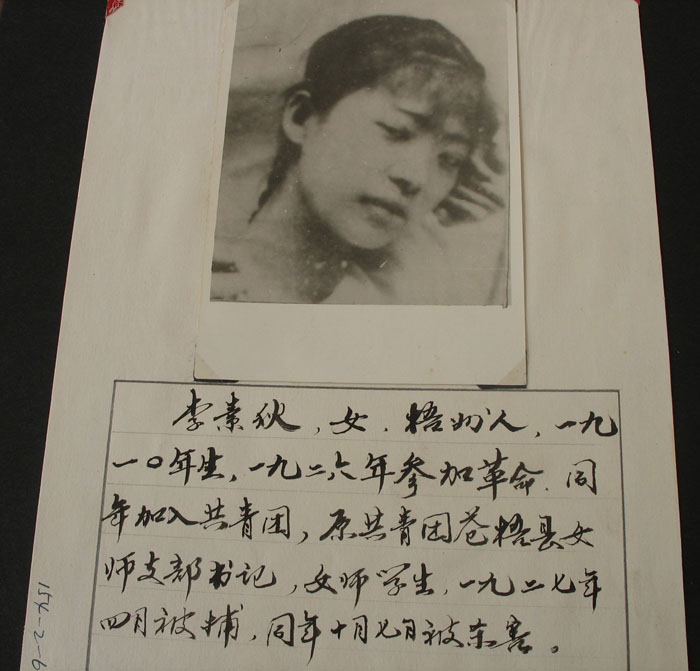 李素秋，女．梧州人，一九
一〇年生，一九二六年参加革命．同
年加入共青团，原共青团苍梧县女
师支部书记，女师学生，一九二七年
四月被捕，同年十月七日被杀害。
154-2-6